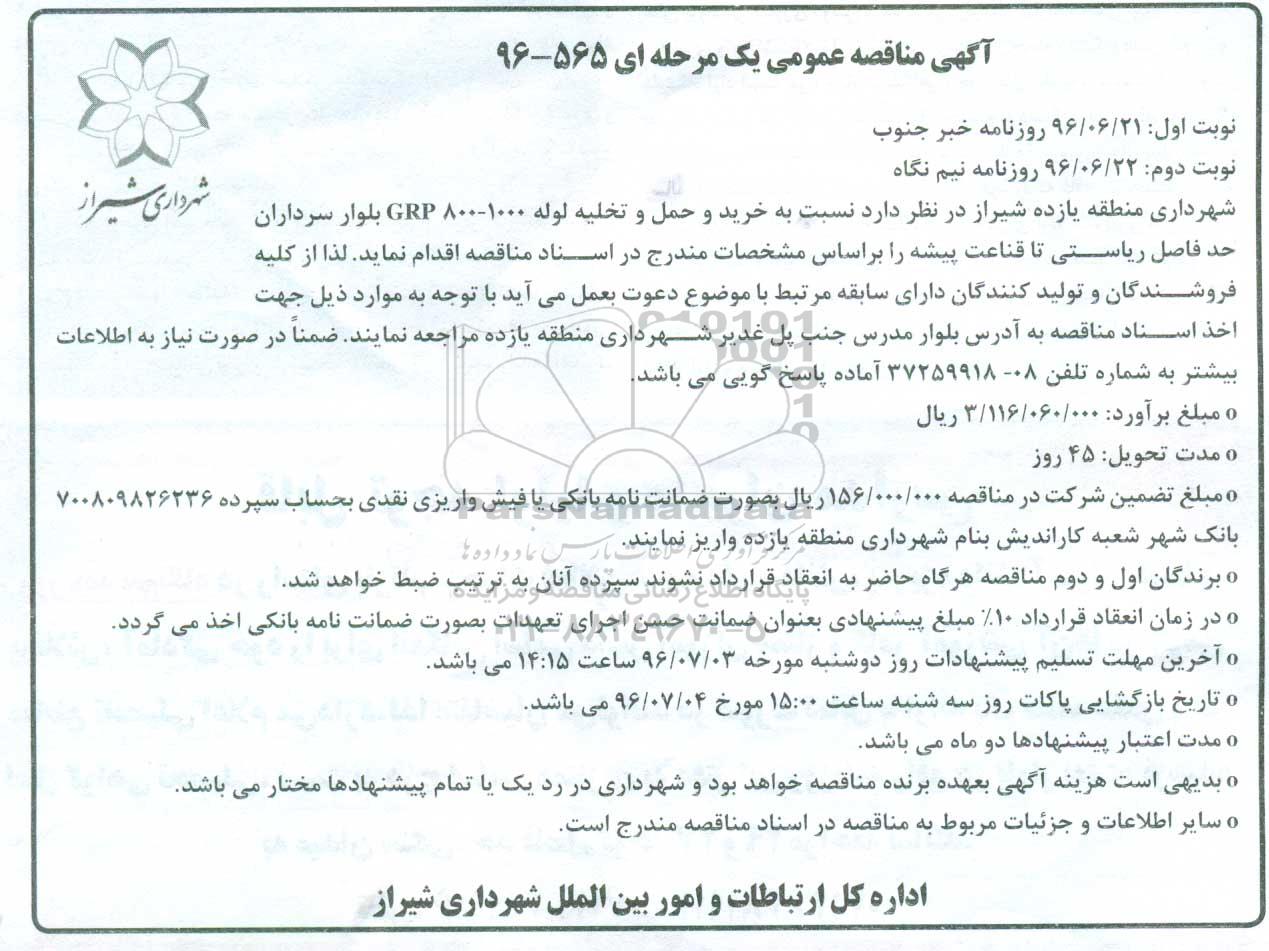 آگهی مناقصه عمومی یک مرحله ای ۵۶۵-۹۶
شهرداری شیراز
نوبت اول: ۹۶/۰۶/۲۱ روزنامه خبر جنوب
نوبت دوم: ۹۶/۰۶/۲۲ روزنامه نیم نگاه
شهرداری منطقه یازده شیراز در نظر دارد نسبت به خرید و حمل و تخلیه لوله ۱۰۰۰-۸۰۰ GRP بلوار سرداران
حد فاصل ریاستی تا قناعت پیشه را براساس مشخصات مندرج در اسناد مناقصه اقدام نماید. لذا از کلیه
فروشندگان و تولید کنندگان دارای سابقه مرتبط با موضوع دعوت بعمل می آید با توجه به موارد ذیل جهت
اخذ اسناد مناقصه به آدرس بلوار مدرس جنب پل غدیر شهرداری منطقه یازده مراجعه نمایند. ضمناً در صورت نیاز به اطلاعات
بیشتر به شماره تلفن ۰۸- ۳۷۲۵۹۹۱۸ آماده پاسخ گویی می باشد.
o مبلغ برآورد: ۳/۱۱۶/۰۶۰/۰۰۰ ریال
o مدت تحویل: ۴۵ روز
o مبلغ تضمین شرکت در مناقصه ۱۵۶/۰۰۰/۰۰۰ریال بصورت ضمانت نامه بانکی یا فیش واریزی نقدی بحساب سپرده ۷۰۰۸۰۹۸۲۶۲۳۶
بانک شهر شعبه کاراندیش بنام شهرداری منطقه یازده واریز نمایند.
o برندگان اول و دوم مناقصه هرگاه حاضر به انعقاد قرارداد نشوند سپرده آنان به ترتیب ضبط خواهد شد.
o در زمان انعقاد قرارداد ۱۰٪ مبلغ پیشنهادی بعنوان ضمانت حسن اجرای تعهدات بصورت ضمانت نامه بانکی اخذ می گردد.
o آخرین مهلت تسلیم پیشنهادات روز دوشنبه مورخه ۹۶/۰۷/۰۳ ساعت ۱۴:۱۵ می باشد.
o تاریخ بازگشایی پاکات روز سه شنبه ساعت ۱۵:۰۰ مورخ ۹۶/۰۷/۰۴ می باشد.
o مدت اعتبار پیشنهادها دو ماه می باشد.
o بدیهی است هزینه آگهی بعهده برنده مناقصه خواهد بود و شهرداری در رد یک یا تمام پیشنهادها مختار می باشد.
o سایر اطلاعات و جزئیات مربوط به مناقصه در اسناد مناقصه مندرج است.
اداره کل ارتباطات و امور بین الملل شهرداری شیراز
ParsNamadData
پایگاه اطلاع رسانی مناقصه و مزایده